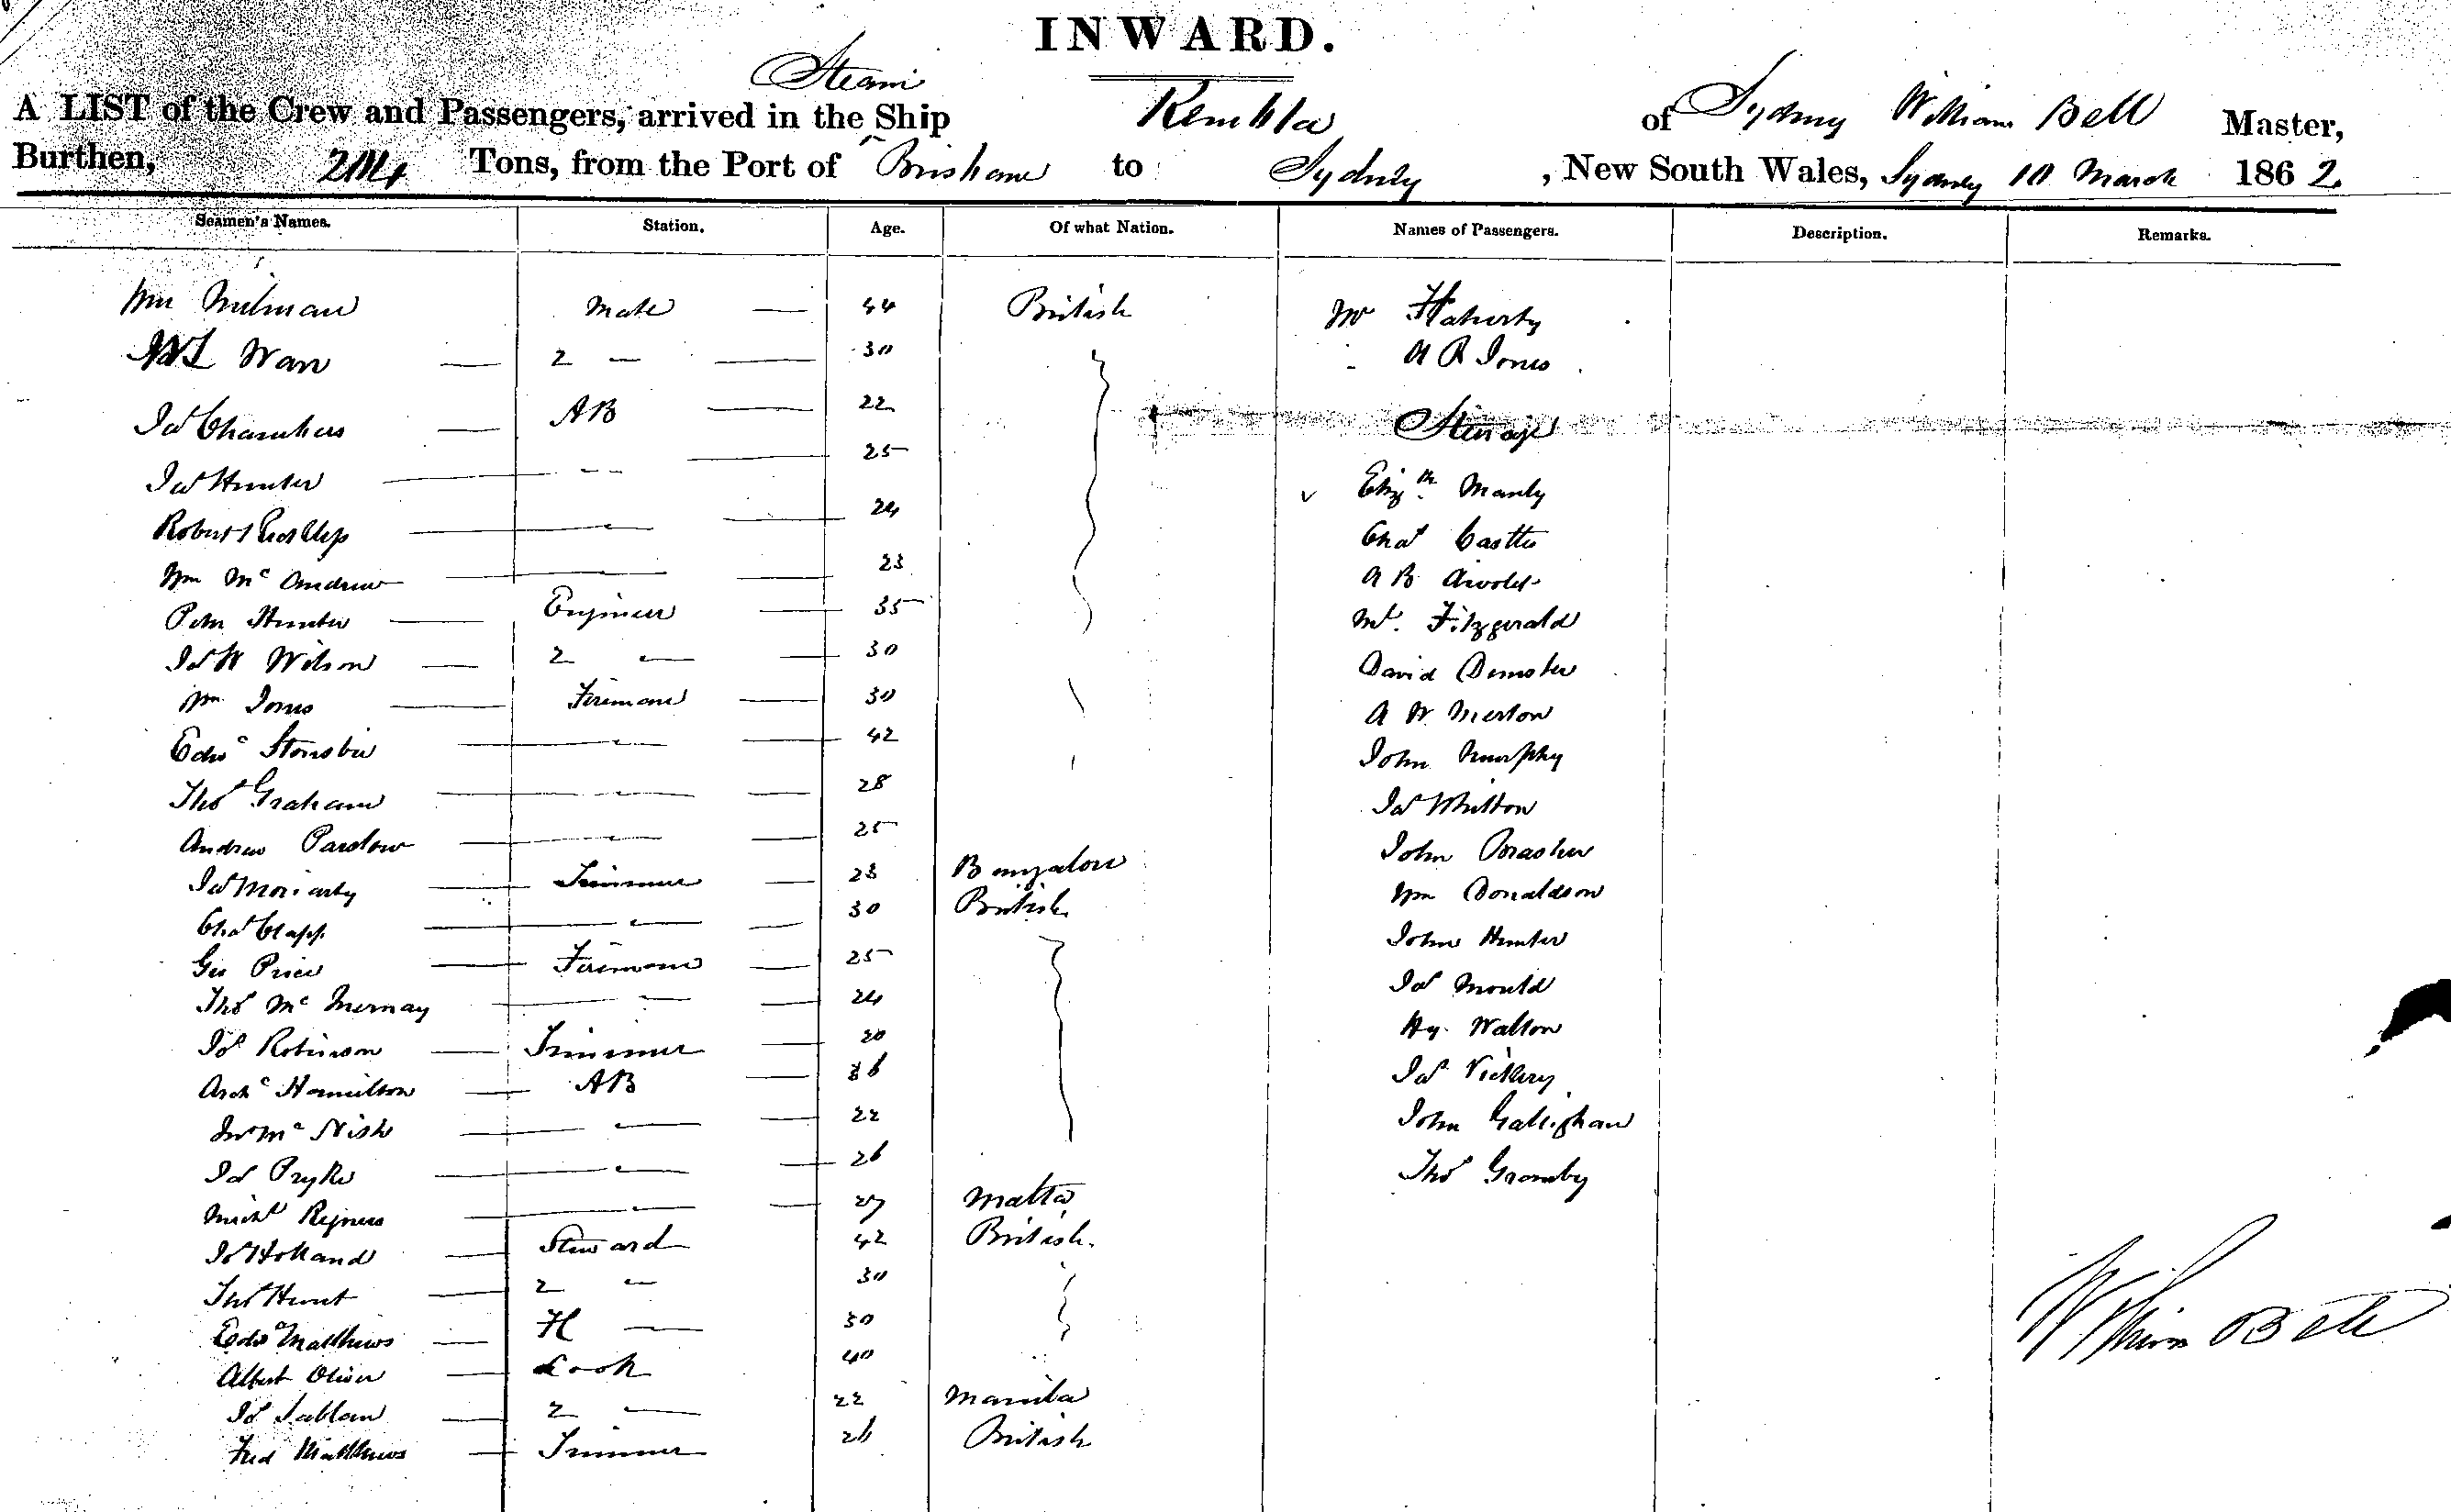 INWARD.
Steam
A LIST of the Crew and Passengers, arrived in the ^ Ship Kembla of Sydney William Bell Master,
Burthen, 214 Tons, from the Port of Brisbane to Sydney , New South Wales, Sydney 10 March 1862.
Seamen's Names. Station. Age. Of what Nation. Names of Passengers. Description. Remarks.
Wm Milman Mate — 44 British Mr Flaherty
Warr — 2 — — 30 - A R Jones
Jas Chambers — AB — 22 Steerage
Jas Hunter — " — 25 Elizth Manly
Robert — " — 24 Chas Castles
Wm McAndrew — " — 23 A B Arnold
Peter Hunter — Engineer — 35 Mr. Fitzgerald
Jas W Wilson — 2 " — 30 David Demster
Wm Jones — Fireman — 30 A W Merton
Edwd — " — 42 John Murphy
Thos Graham — " — 28 Jas Whitton
Andrew Parslow — " — 25 John Brasher
Jas Moriarty — Trimmer — 23 Bangalore Wm Donaldson
Chas Clapp — " — 30 British John Hunter
Geo Price — Fireman — 25 Jas Mould
Thos — " — 24 Hy. Walton
Jos Robinson — Trimmer — 20 Jas Vickery
Archd Hamilton — AB — 36 John Gallighan
Jno McNish — " — 22 Thos Gromby
Jas Pryke — " — 26
Michl — " — 27 Malta
Jos Holland — Steward 42 British.
Thos Hunt — 2 " 30
Edwd Matthews — — 30
Albert Oliver — Cook 40
Jos — 2 — 22 Manila
Fred Matthews — Trimmer 26 British
William Bell